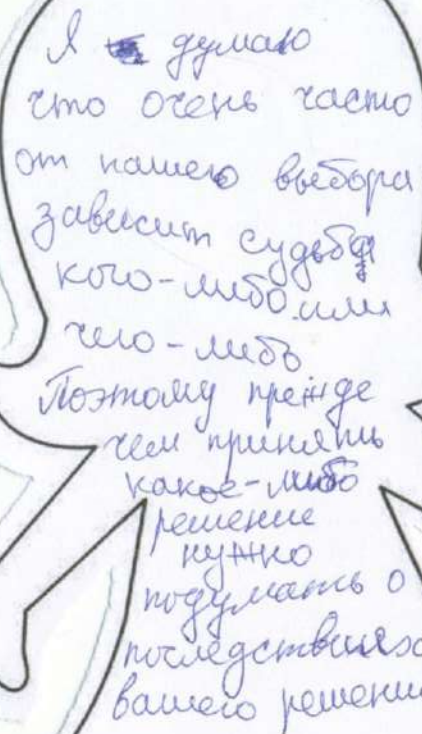 Я думаю
что очень часто
от нашего выбора
зависит судьба
кого-либо или
чего-либо
Поэтому прежде
чем принять
какое-либо
решение
нужно
подумать о
последствиях
вашего решения